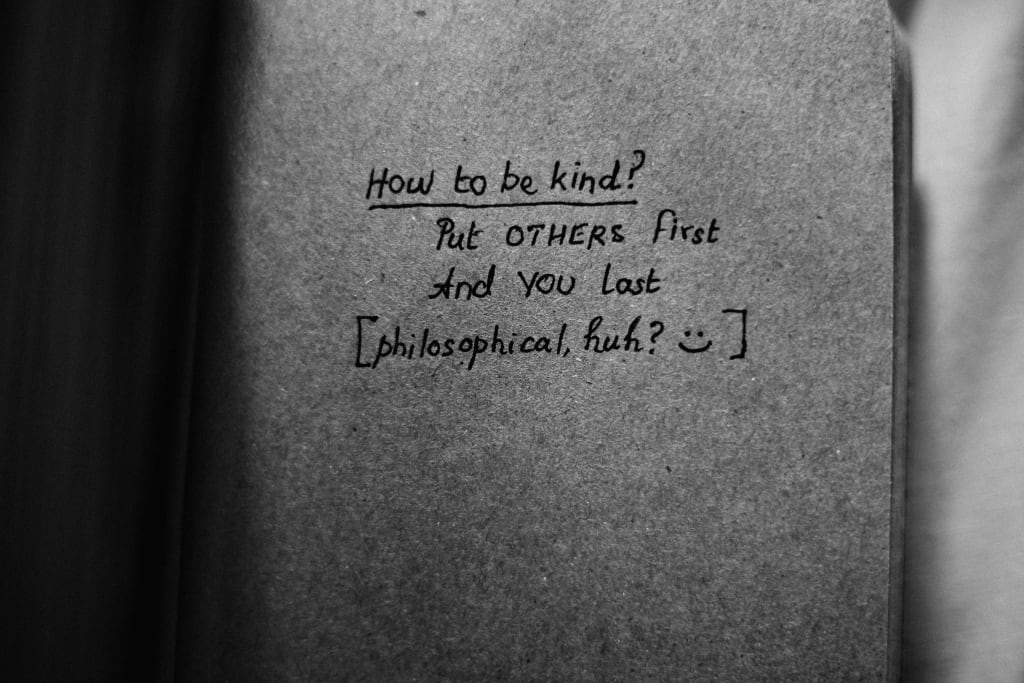 How to be kind?
Put OTHERS first
And YOU last
[philosophical, huh? :)]